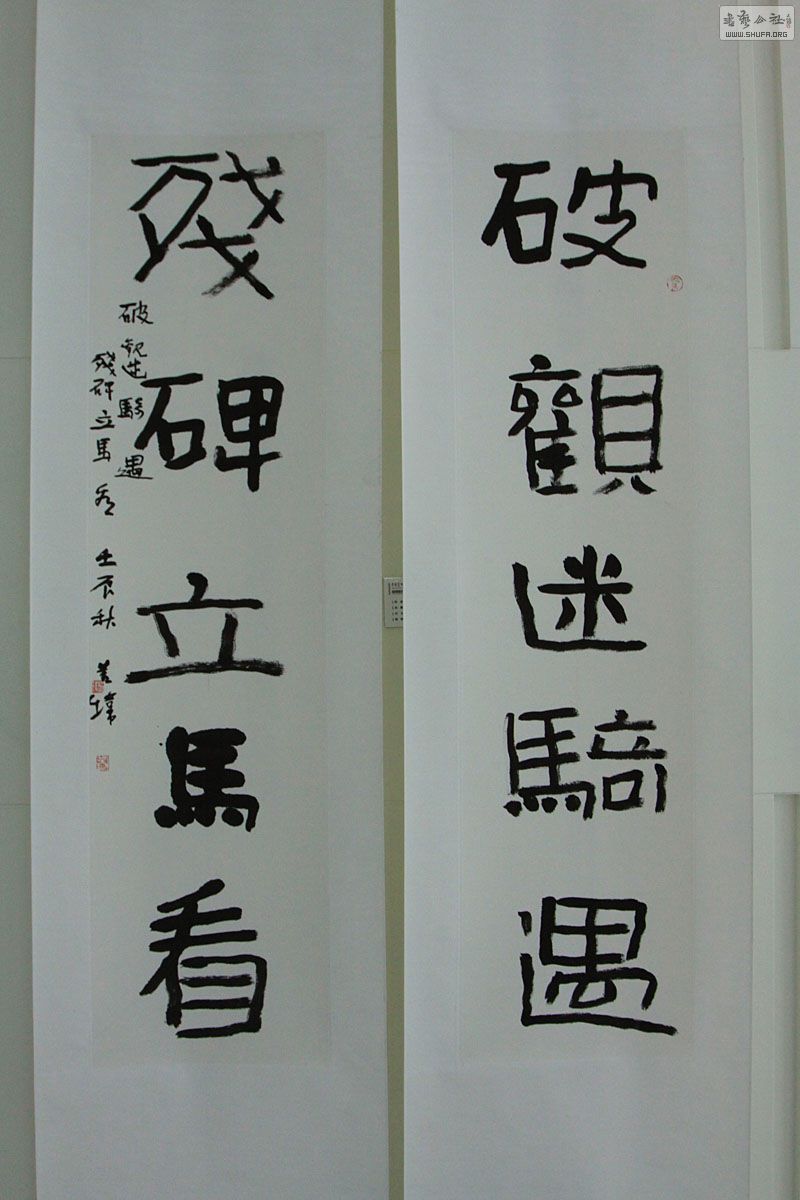 破觀迷騎遇
殘碑立馬看
破觀迷騎遇
殘碑立馬看 壬辰秋
書藝公社
WWW.SHUFA.ORG